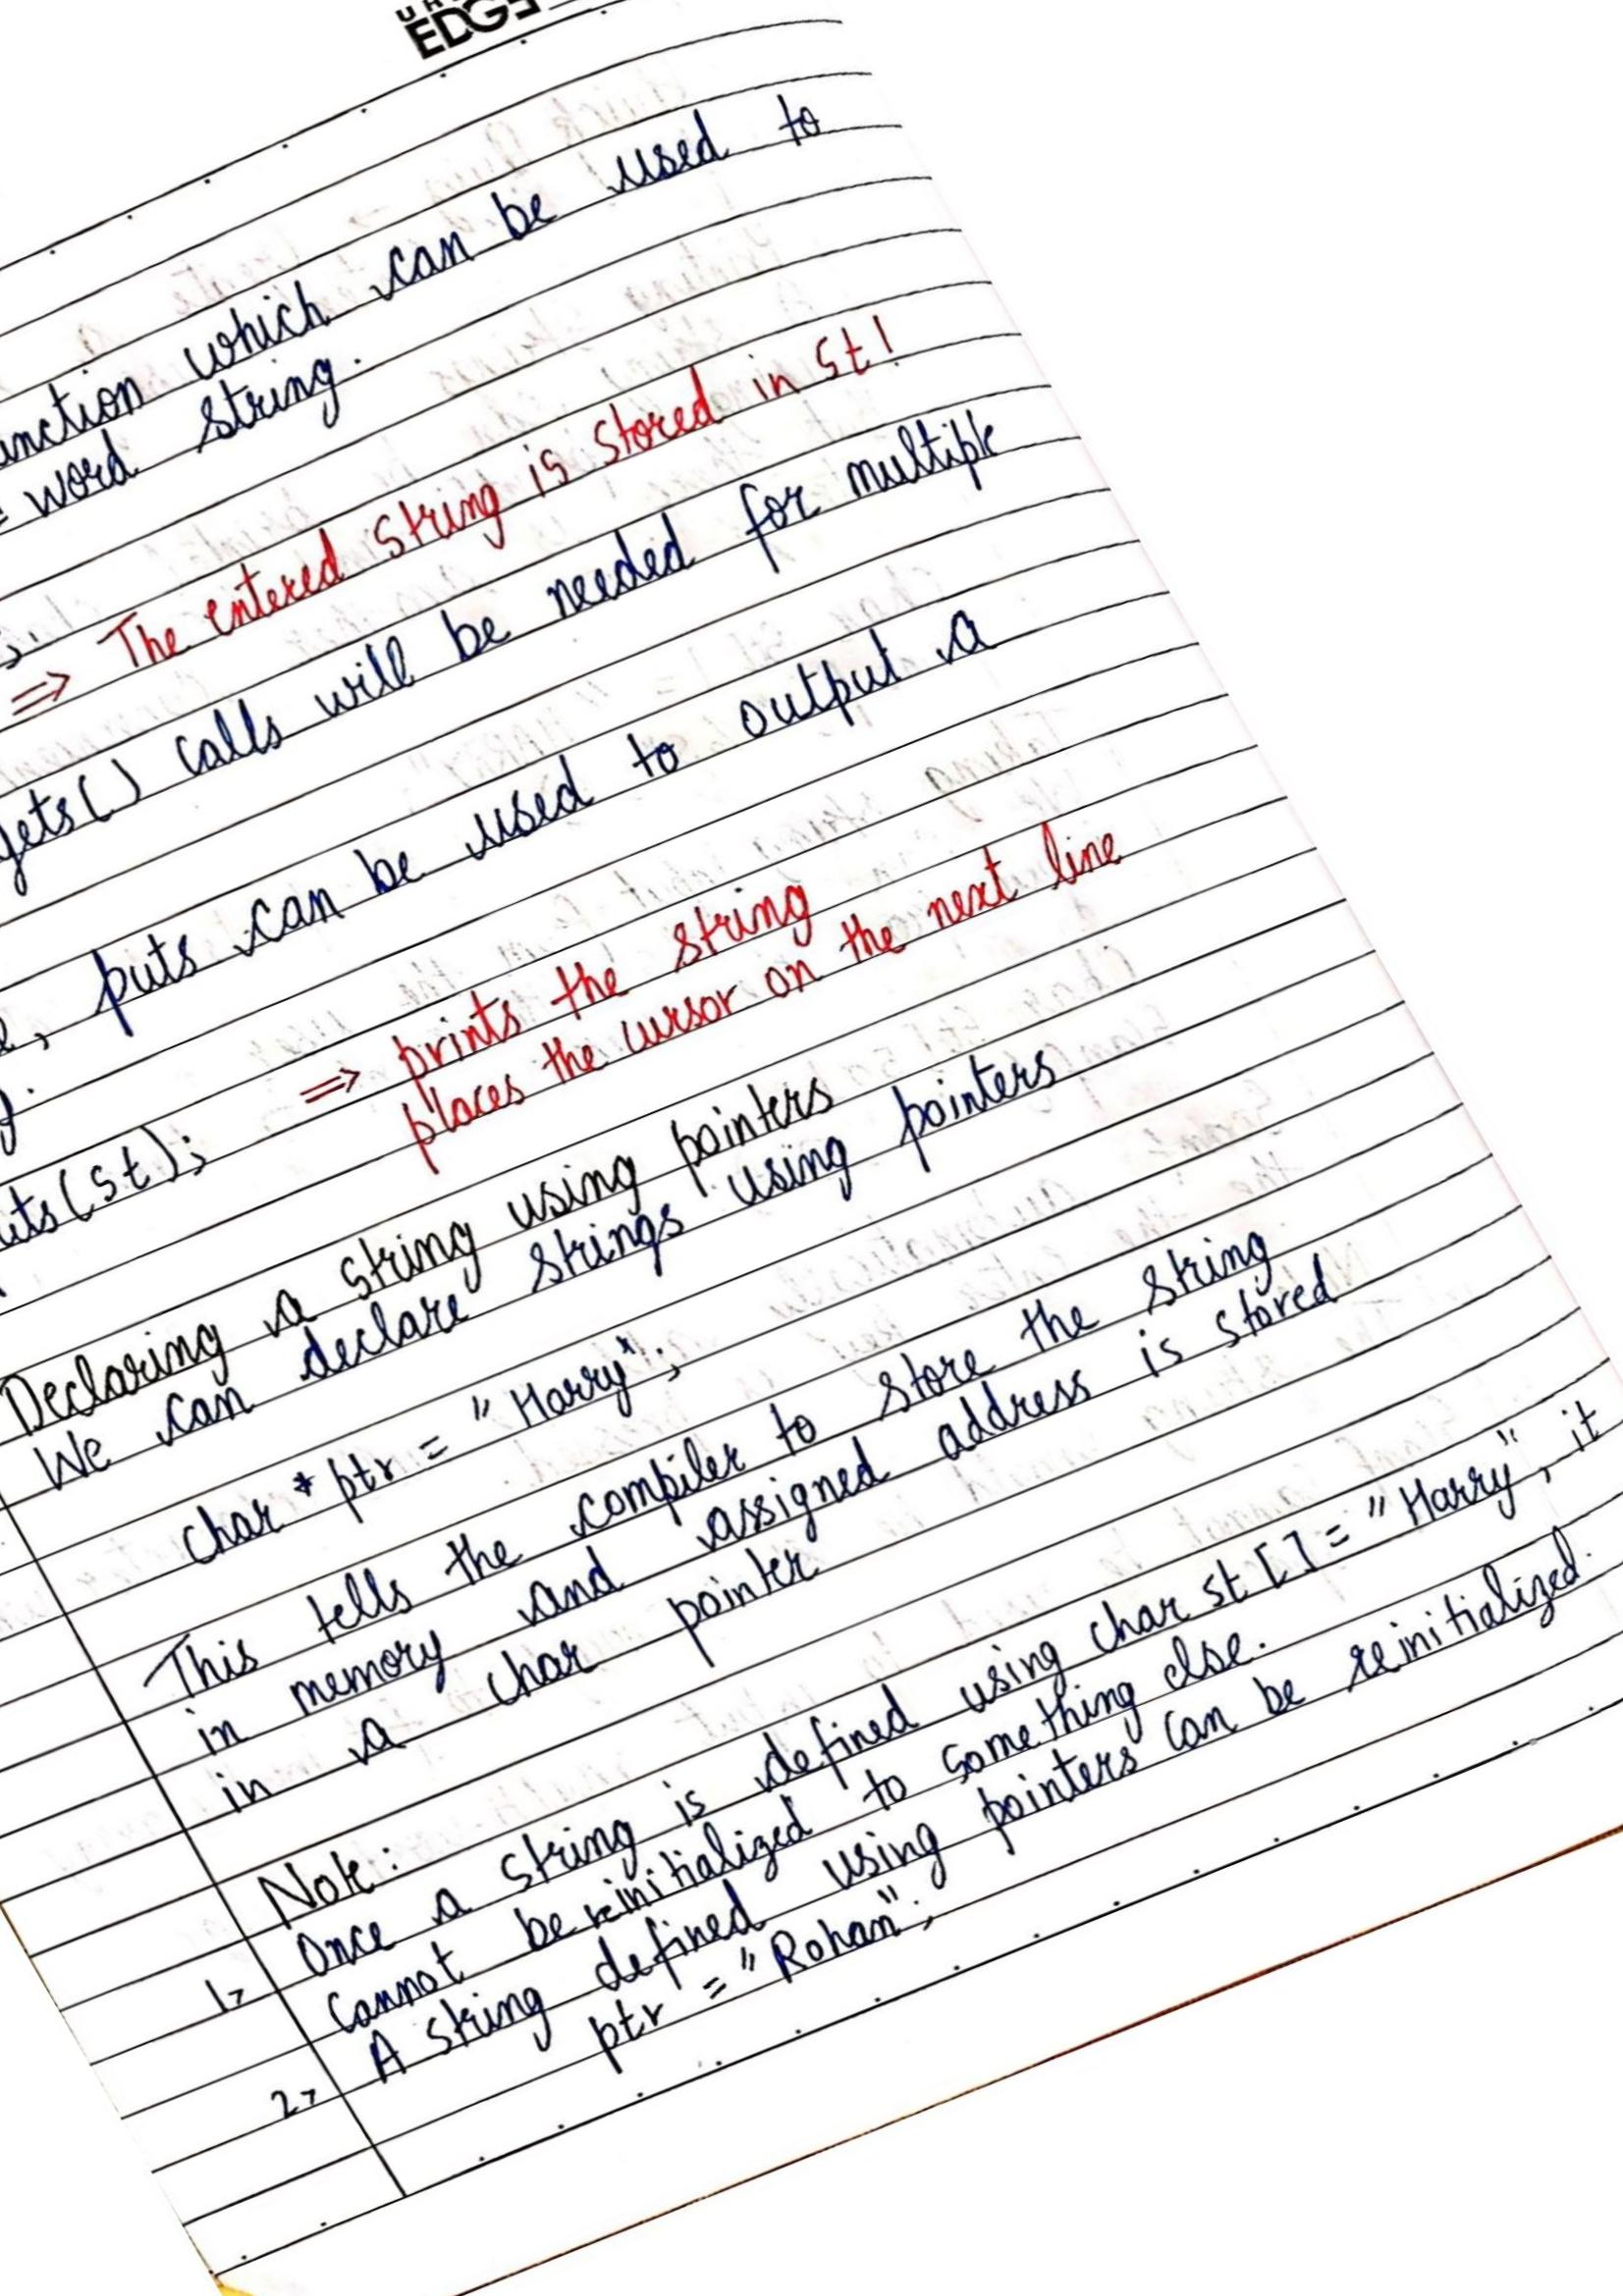 EDGE
unction which can be used to
word string.
⇒ The entered string is stored in st!
gets() calls will be needed for multiple
, puts can be used to output a
uts(st); ⇒ prints the string
places the cursor on the next line
Declaring a string using pointers
We can declare strings using pointers
char * ptr = "Harry";
This tells the compiler to store the string
in memory and assigned address is stored
in a char pointer
Note:
1> Once a string is defined using char st[] = "Harry", it
cannot be reinitialized to something else.
2> A string defined using pointers can be reinitialized.
ptr = "Rohan";